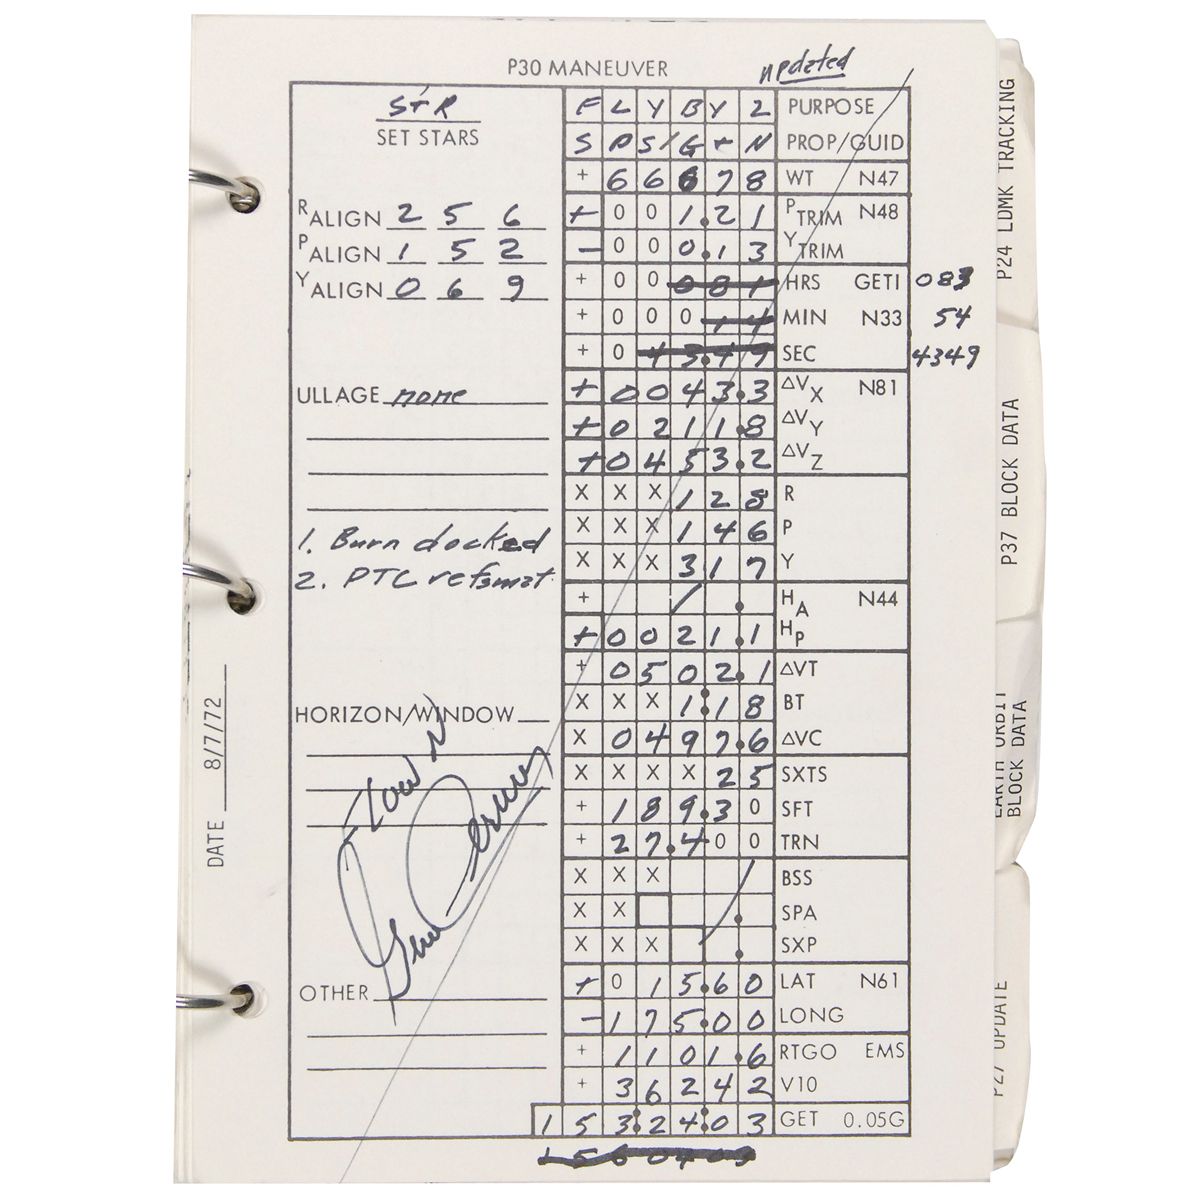 P30 MANEUVER
updated
S+R
SET STARS
F L Y B Y 2 PURPOSE
S P S / G + N PROP/GUID
+ 6 6 6 7 8 WT N47
R ALIGN 2 5 6
+ 0 0 1.2 1 P TRIM N48
P ALIGN 1 5 2
- 0 0 0.1 3 Y TRIM
Y ALIGN 0 6 9
+ 0 0 0 8 1 HRS GETI 083
+ 0 0 0 1 4 MIN N33 54
+ 0 4 3.4 9 SEC 4349
ULLAGE none
+ 0 0 4 3.3 ΔVX N81
+ 0 2 1 1.8 ΔVY
+ 0 4 5 3.2 ΔVZ
X X X 1 2 8 R
1. Burn docked
X X X 1 4 6 P
2. PTC refsmat
X X X 3 1 7 Y
+ / . HA N44
+ 0 0 2 1.1 HP
+ 0 5 0 2.1 ΔVT
HORIZON/WINDOW
X X X 1:1 8 BT
X 0 4 9 7.6 ΔVC
X X X X 2 5 SXTS
+ 1 8 9.3 0 SFT
+ 2 7.4 0 0 TRN
X X X BSS
X X . SPA
X X X . SXP
Flown
Gene Cernan
OTHER
+ 0 1 5.6 0 LAT N61
- 1 7 5.0 0 LONG
+ 1 1 0 1.6 RTGO EMS
+ 3 6 2 4 2 V10
1 5 3:2 4:0 3 GET 0.05G
1560409
DATE 8/7/72
P24 LDMK TRACKING
P37 BLOCK DATA
EARTH ORBIT
BLOCK DATA
P27 UPDATE